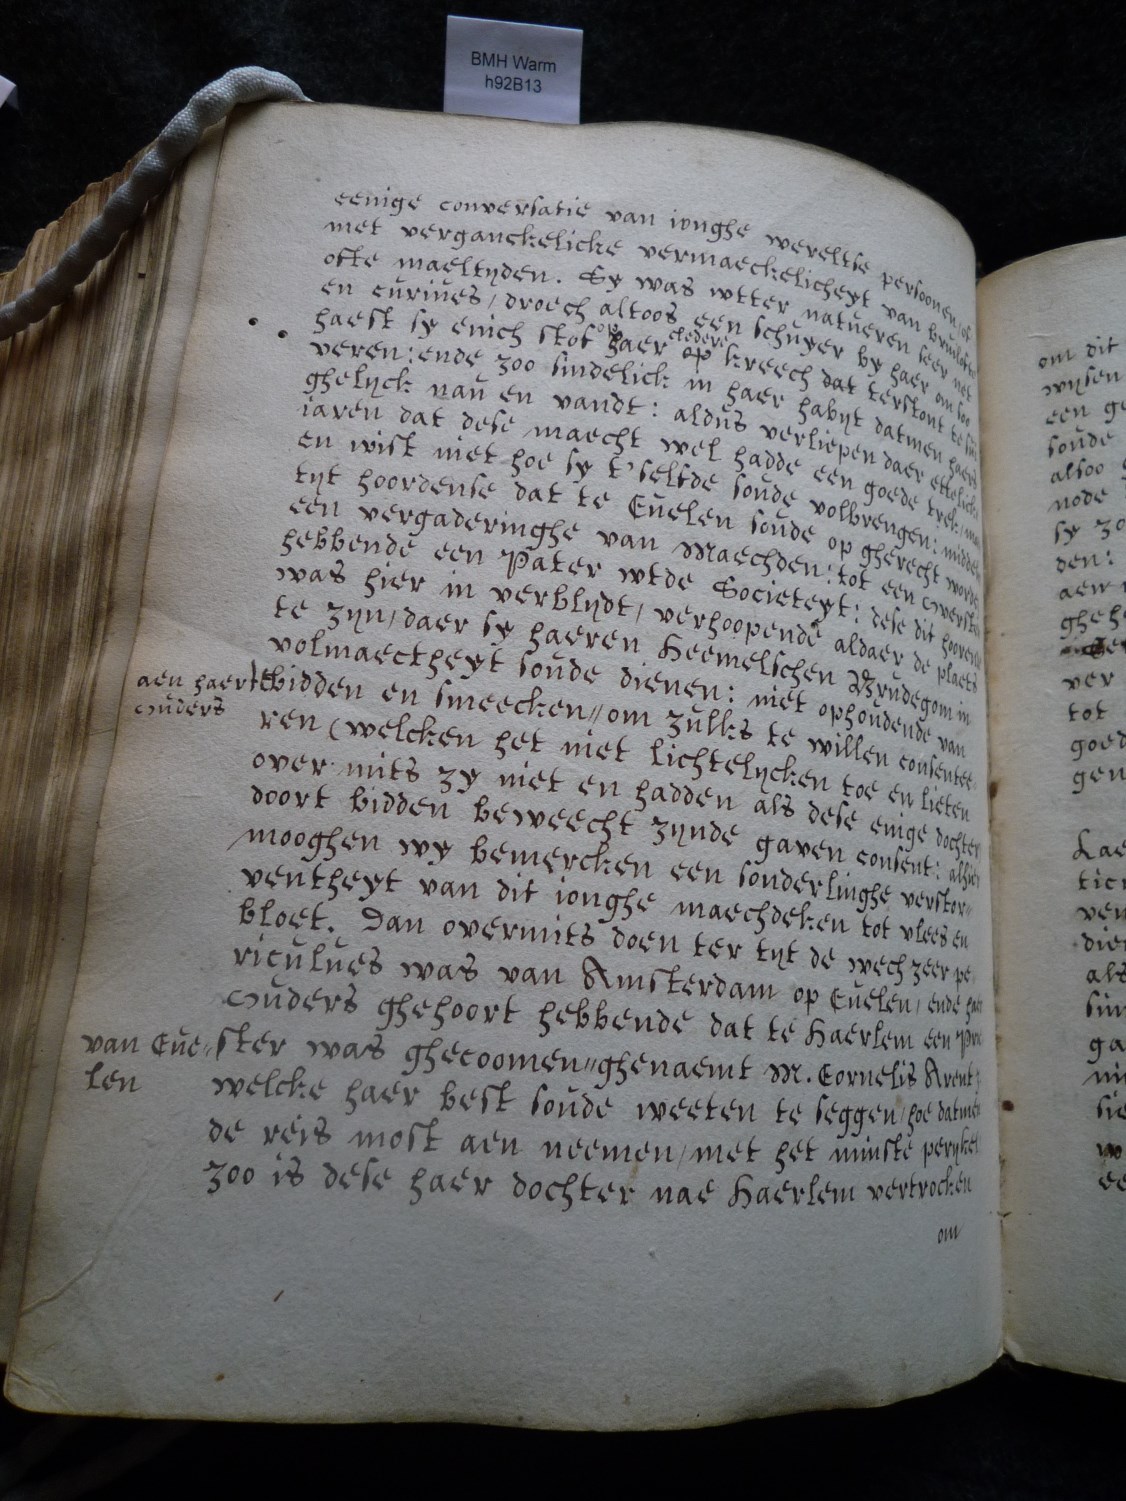 BMH Warm
h92B13
eenige conversatie van ionghe wereltse persoonen / of
met verganckelicke vermaeckelicheyt van bruilofte
ofte maeltyden. Sy was wtter natueren seer net
en curiues / droech altoos een schuyer by haer om soo
haest sy enich stof op haer cledere kreech dat terstont te sui
veren: ende zoo sindelick in haer habyt datmen haers
ghelyck nau en vandt: aldus verliepen daer ettelicke
iaren dat dese maecht wel hadde een goede treck / maer
en wist niet hoe sy t'selfde soude volbrengen: midde
tyt hoordense dat te Euelen soude op gherecht worde
een vergaderinghe van Maechden: tot een Oversten
hebbende een Pater wtde Societeyt: dese dit hoorende
was hier in verblydt / verhoopende aldaer de plaets
te zyn / daer sy haeren Heemelschen Brudegom in
volmaectheyt soude dienen: niet ophoudende van
aen haer
ouders
te bidden en smeecken // om zulks te willen consentee-
ren (welcken het niet lichtelycken toe en lieten
over mits zy niet en hadden als dese enige dochter
doort bidden beweecht zynde gaven consent: alhier
mooghen wy bemercken een sonderlinghe verstor-
ventheyt van dit ionghe maechdeken tot vlees en
bloet. Dan overmits doen ter tyt de wech zeer pe
riculues was van Amsterdam op Euelen / ende haer
ouders ghehoort hebbende dat te Haerlem een Pre
van Eue-
len
ster was ghecoomen // ghenaemt M. Cornelis Arent
welcke haer best soude weeten te seggen / hoe datmen
de reis most aen neemen / met het minste perykel
zoo is dese haer dochter nae Haerlem vertrocken
om
om dit
wysen
een ge
soude
alsoo
node
sy zo
den:
aen
ghehe
ver
tot
goed
gen
Lae
ticn
ven
dien
als
sin
ga
ni
sie
w
ee